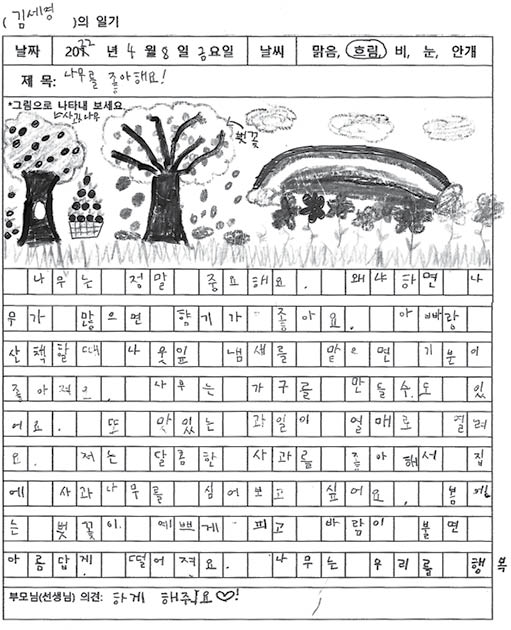 ( 김세경 )의 일기
날짜 2022 년 4 월 8 일 금요일 날씨 맑음, 흐림, 비, 눈, 안개
제 목: 나무를 좋아해요!
*그림으로 나타내 보세요.
사과나무
벚꽃
나무는 정말 중요해요. 왜냐하면 나
무가 많으면 향기가 좋아요. 아빠랑
산책할때 나뭇잎 냄새를 맡으면 기분이
좋아져요. 나무는 가구를 만들수도 있
어요. 또 맛있는 과일이 열매로 열려
요. 저는 달콤한 사과를 좋아해서 집
에 사과나무를 심어보고 싶어요. 봄에
는 벚꽃이 예쁘게 피고 바람이 불면
아름답게 떨어져요. 나무는 우리를 행복
부모님(선생님) 의견: 하게 해주어요♡!